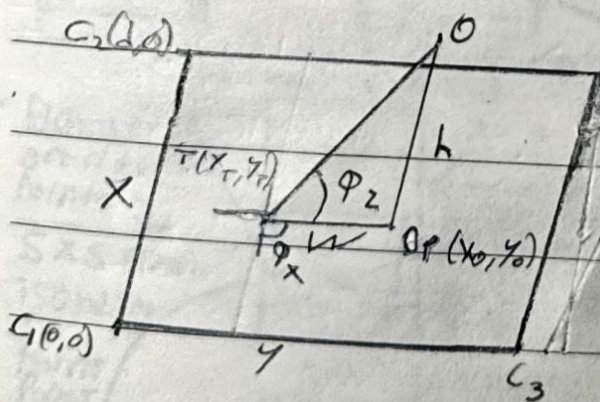 C₂(d,0)
O
h
T(x_T, y_T)
φ₂
X
Op (x₀, y₀)
W
φₓ
C₁(0,0)
y
C₃